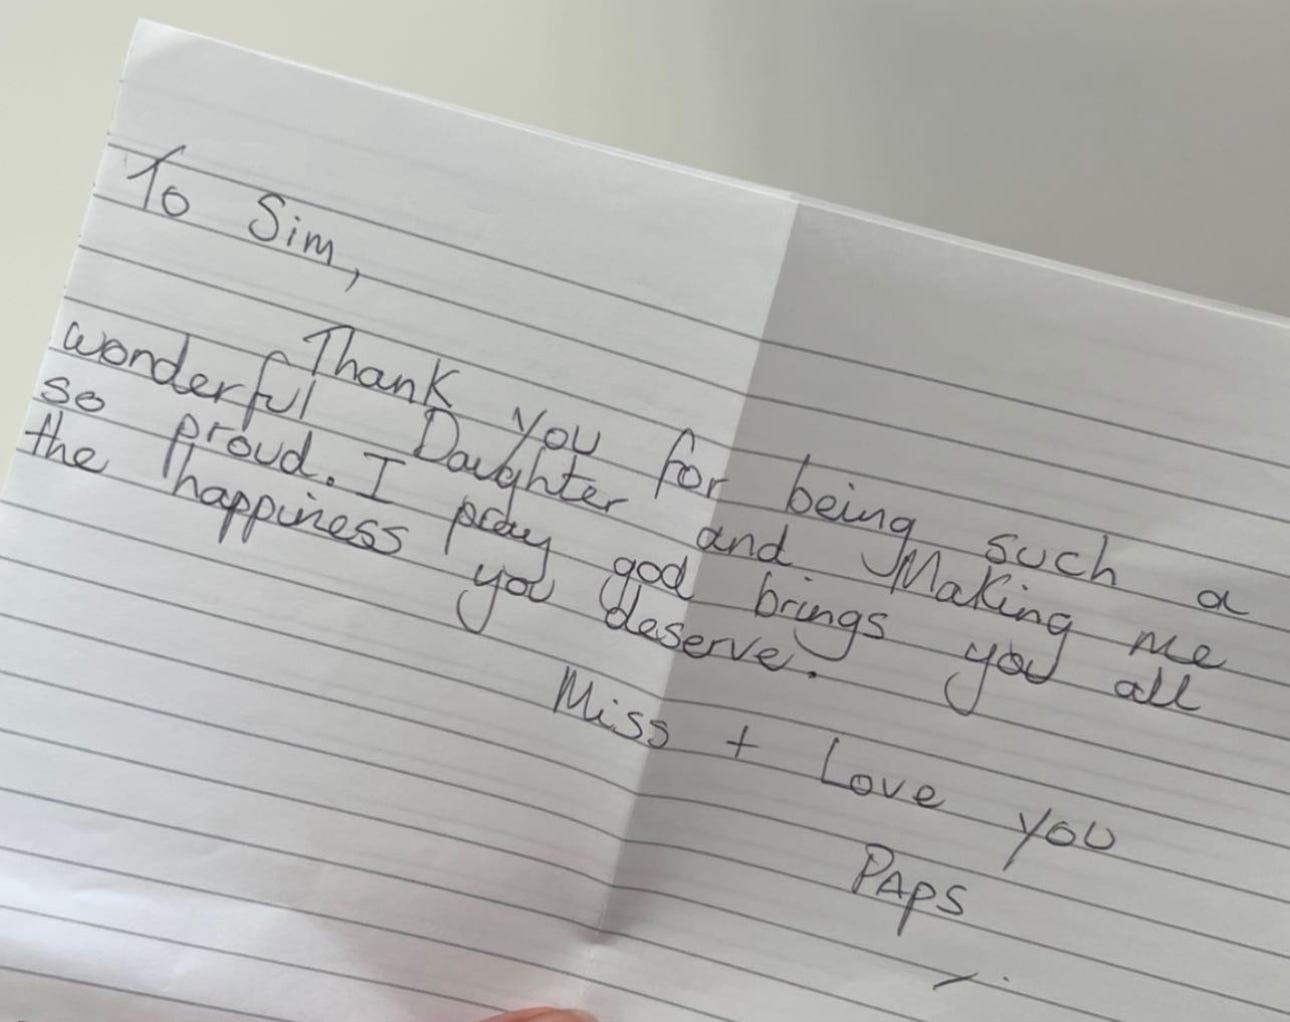 To Sim,
Thank you for being such a
wonderful Daughter and Making me
so proud. I pray god brings you all
the happiness you deserve.
Miss + Love you
PAPS